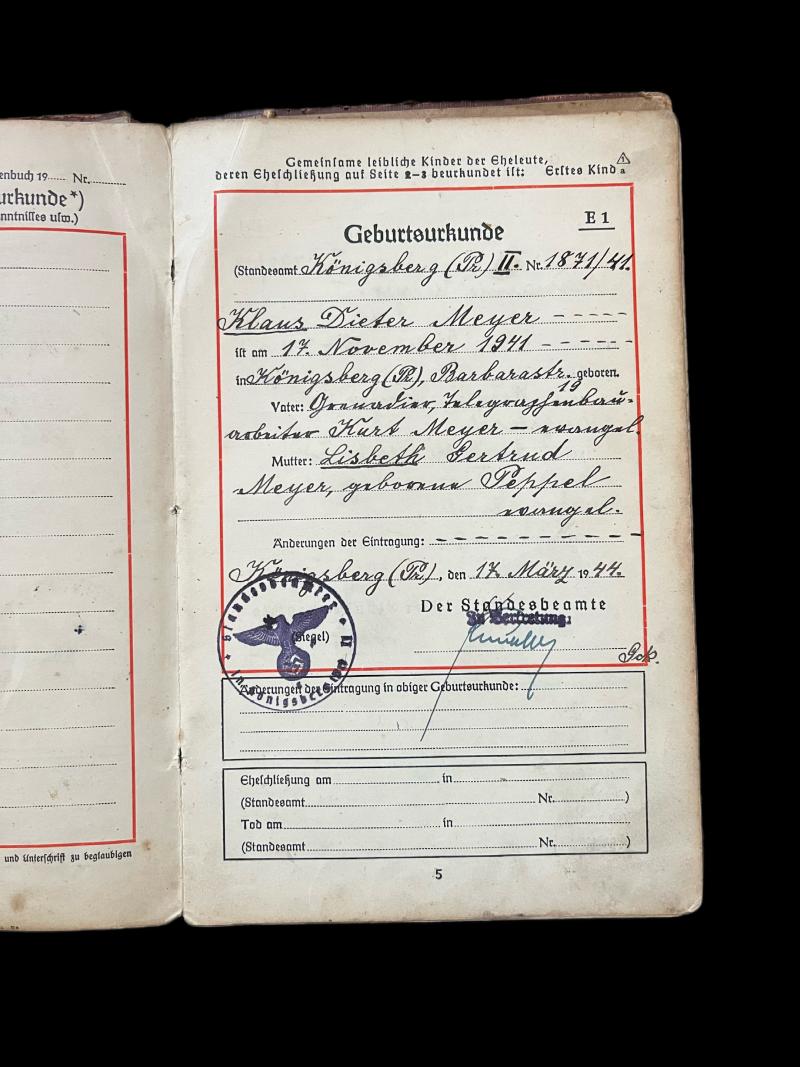 enbuch 19 Nr.
urkunde*)
nntnisses usw.)
und Unterschrift zu beglaubigen
Gemeinsame leibliche Kinder der Eheleute,
deren Eheschließung auf Seite 2-3 beurkundet ist: Erstes Kind 1 a
E 1
Geburtsurkunde
(Standesamt Königsberg (Pr) II. Nr. 1871/41.
Klaus Dieter Meyer
ist am 17. November 1941
in Königsberg (Pr), Barbarastr. 19 geboren.
Vater: Grenadier, Telegraphenbau-
arbeiter Kurt Meyer - evangel.
Mutter: Lisbeth Gertrud
Meyer, geborene Peppel
evangel.
Änderungen der Eintragung:
Königsberg (Pr), den 17. März 1944.
Der Standesbeamte
In Vertretung:
(Siegel)
Standesbeamter II
in Königsberg (Pr)
Änderungen der Eintragung in obiger Geburtsurkunde:
Eheschließung am in
(Standesamt Nr. )
Tod am in
(Standesamt Nr. )
5